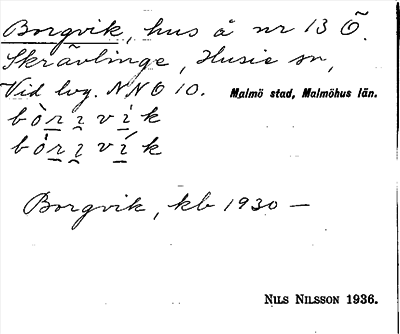 Borgvik, hus å nr 13 Ö.
Skrävlinge, Husie sn,
Vid lvg. NNO 10. Malmö stad, Malmöhus län.
bòrı vìk
bórı vík
Borgvik, kb 1930 —
NILS NILSSON 1936.